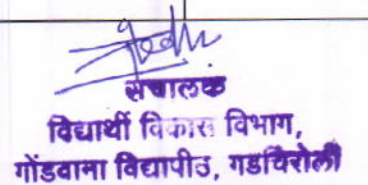 संचालक
विद्यार्थी विकास विभाग,
गोंडवाना विद्यापीठ, गडचिरोली